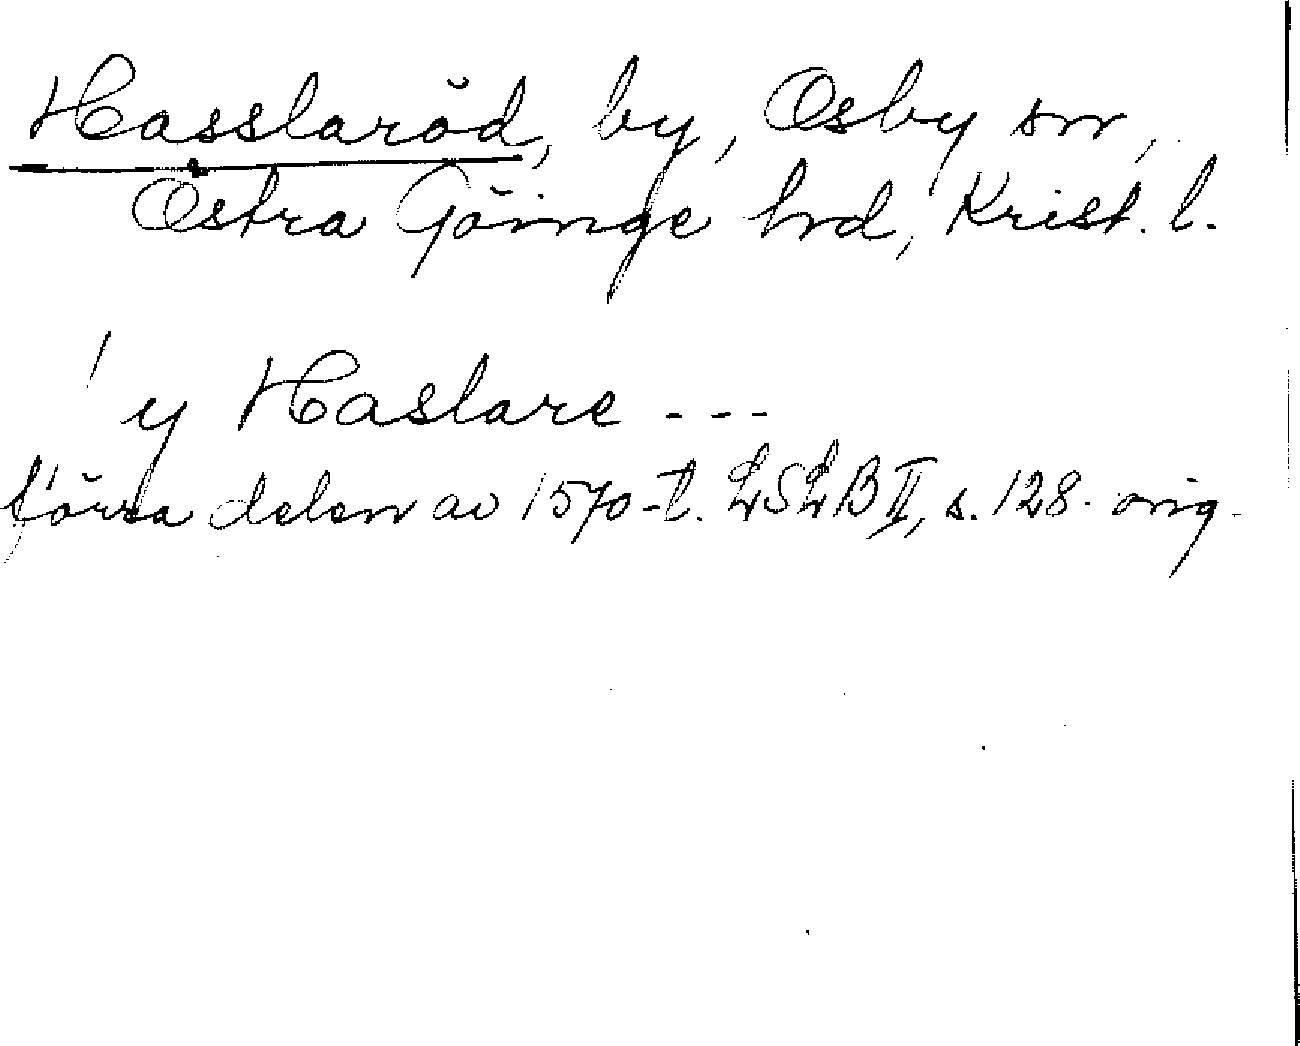 Hasslaröd, by, Osby sn,
Östra Göinge hrd, Krist. l.
y Haslare ---
förra delen av 1570-t. LSLB II, s. 128. orig.